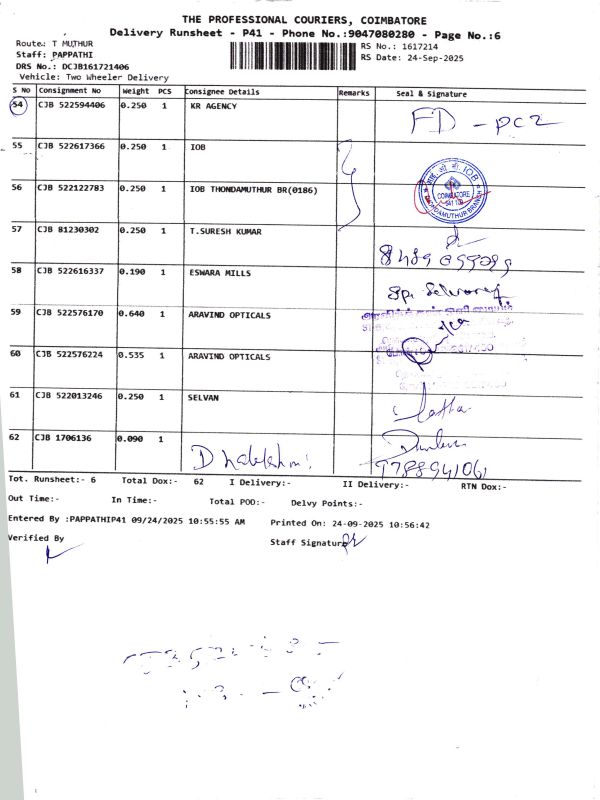 THE PROFESSIONAL COURIERS, COIMBATORE
Delivery Runsheet - P41 - Phone No.:9047080280 - Page No.:6
Route: T MUTHUR
RS No.: 1617214
Staff: PAPPATHI
RS Date: 24-Sep-2025
DRS No.: DCJB161721406
Vehicle: Two Wheeler Delivery
S No Consignment No Weight PCS Consignee Details Remarks Seal & Signature
54 CJB 522594406 0.250 1 KR AGENCY FD - PC2
55 CJB 522617366 0.250 1 IOB
56 CJB 522122783 0.250 1 IOB THONDAMUTHUR BR(0186)
IOB
COIMBATORE
641 109
THONDAMUTHUR BRANCH
57 CJB 81230302 0.250 1 T.SURESH KUMAR
58 CJB 522616337 0.190 1 ESWARA MILLS
59 CJB 522576170 0.640 1 ARAVIND OPTICALS
60 CJB 522576224 0.535 1 ARAVIND OPTICALS
61 CJB 522013246 0.250 1 SELVAN Latha
62 CJB 1706136 0.090 1 Dhalakshmi
9788941061
Tot. Runsheet:- 6 Total Dox:- 62 I Delivery:- II Delivery:- RTN Dox:-
Out Time:- In Time:- Total POD:- Delvy Points:-
Entered By :PAPPATHIP41 09/24/2025 10:55:55 AM Printed On: 24-09-2025 10:56:42
Verified By Staff Signature